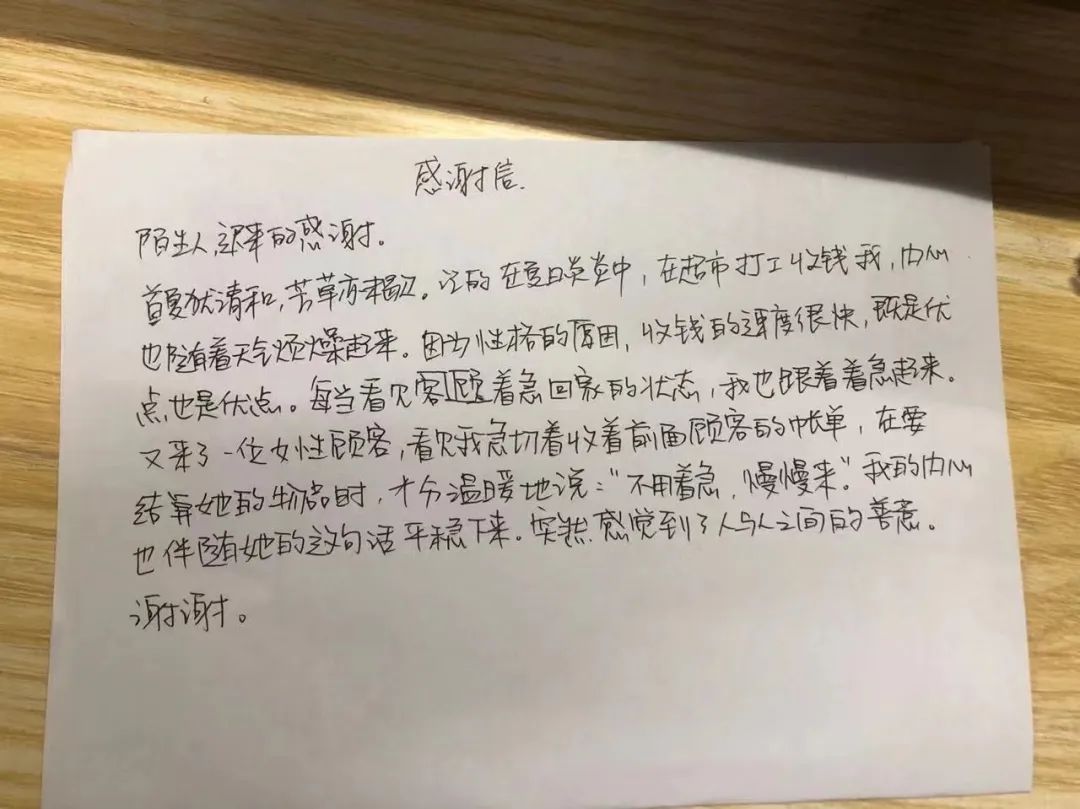 感谢信.
陌生人,迟来的感谢。
首夏犹清和,芳草亦未歇。记的在夏日炎炎中,在超市打工收钱我,内心
也随着天气烦燥起来。因为性格的原因,收钱的速度很快,既是优
点也是优点。每当看见客顾着急回家的状态,我也跟着着急起来。
又来了一位女性顾客,看见我急切着收着前面顾客的帐单,在要
结算她的物品时,十分温暖地说:“不用着急,慢慢来”。我的内心
也伴随她的这句话平稳下来。突然感觉到了人与人之间的善意。
谢谢。